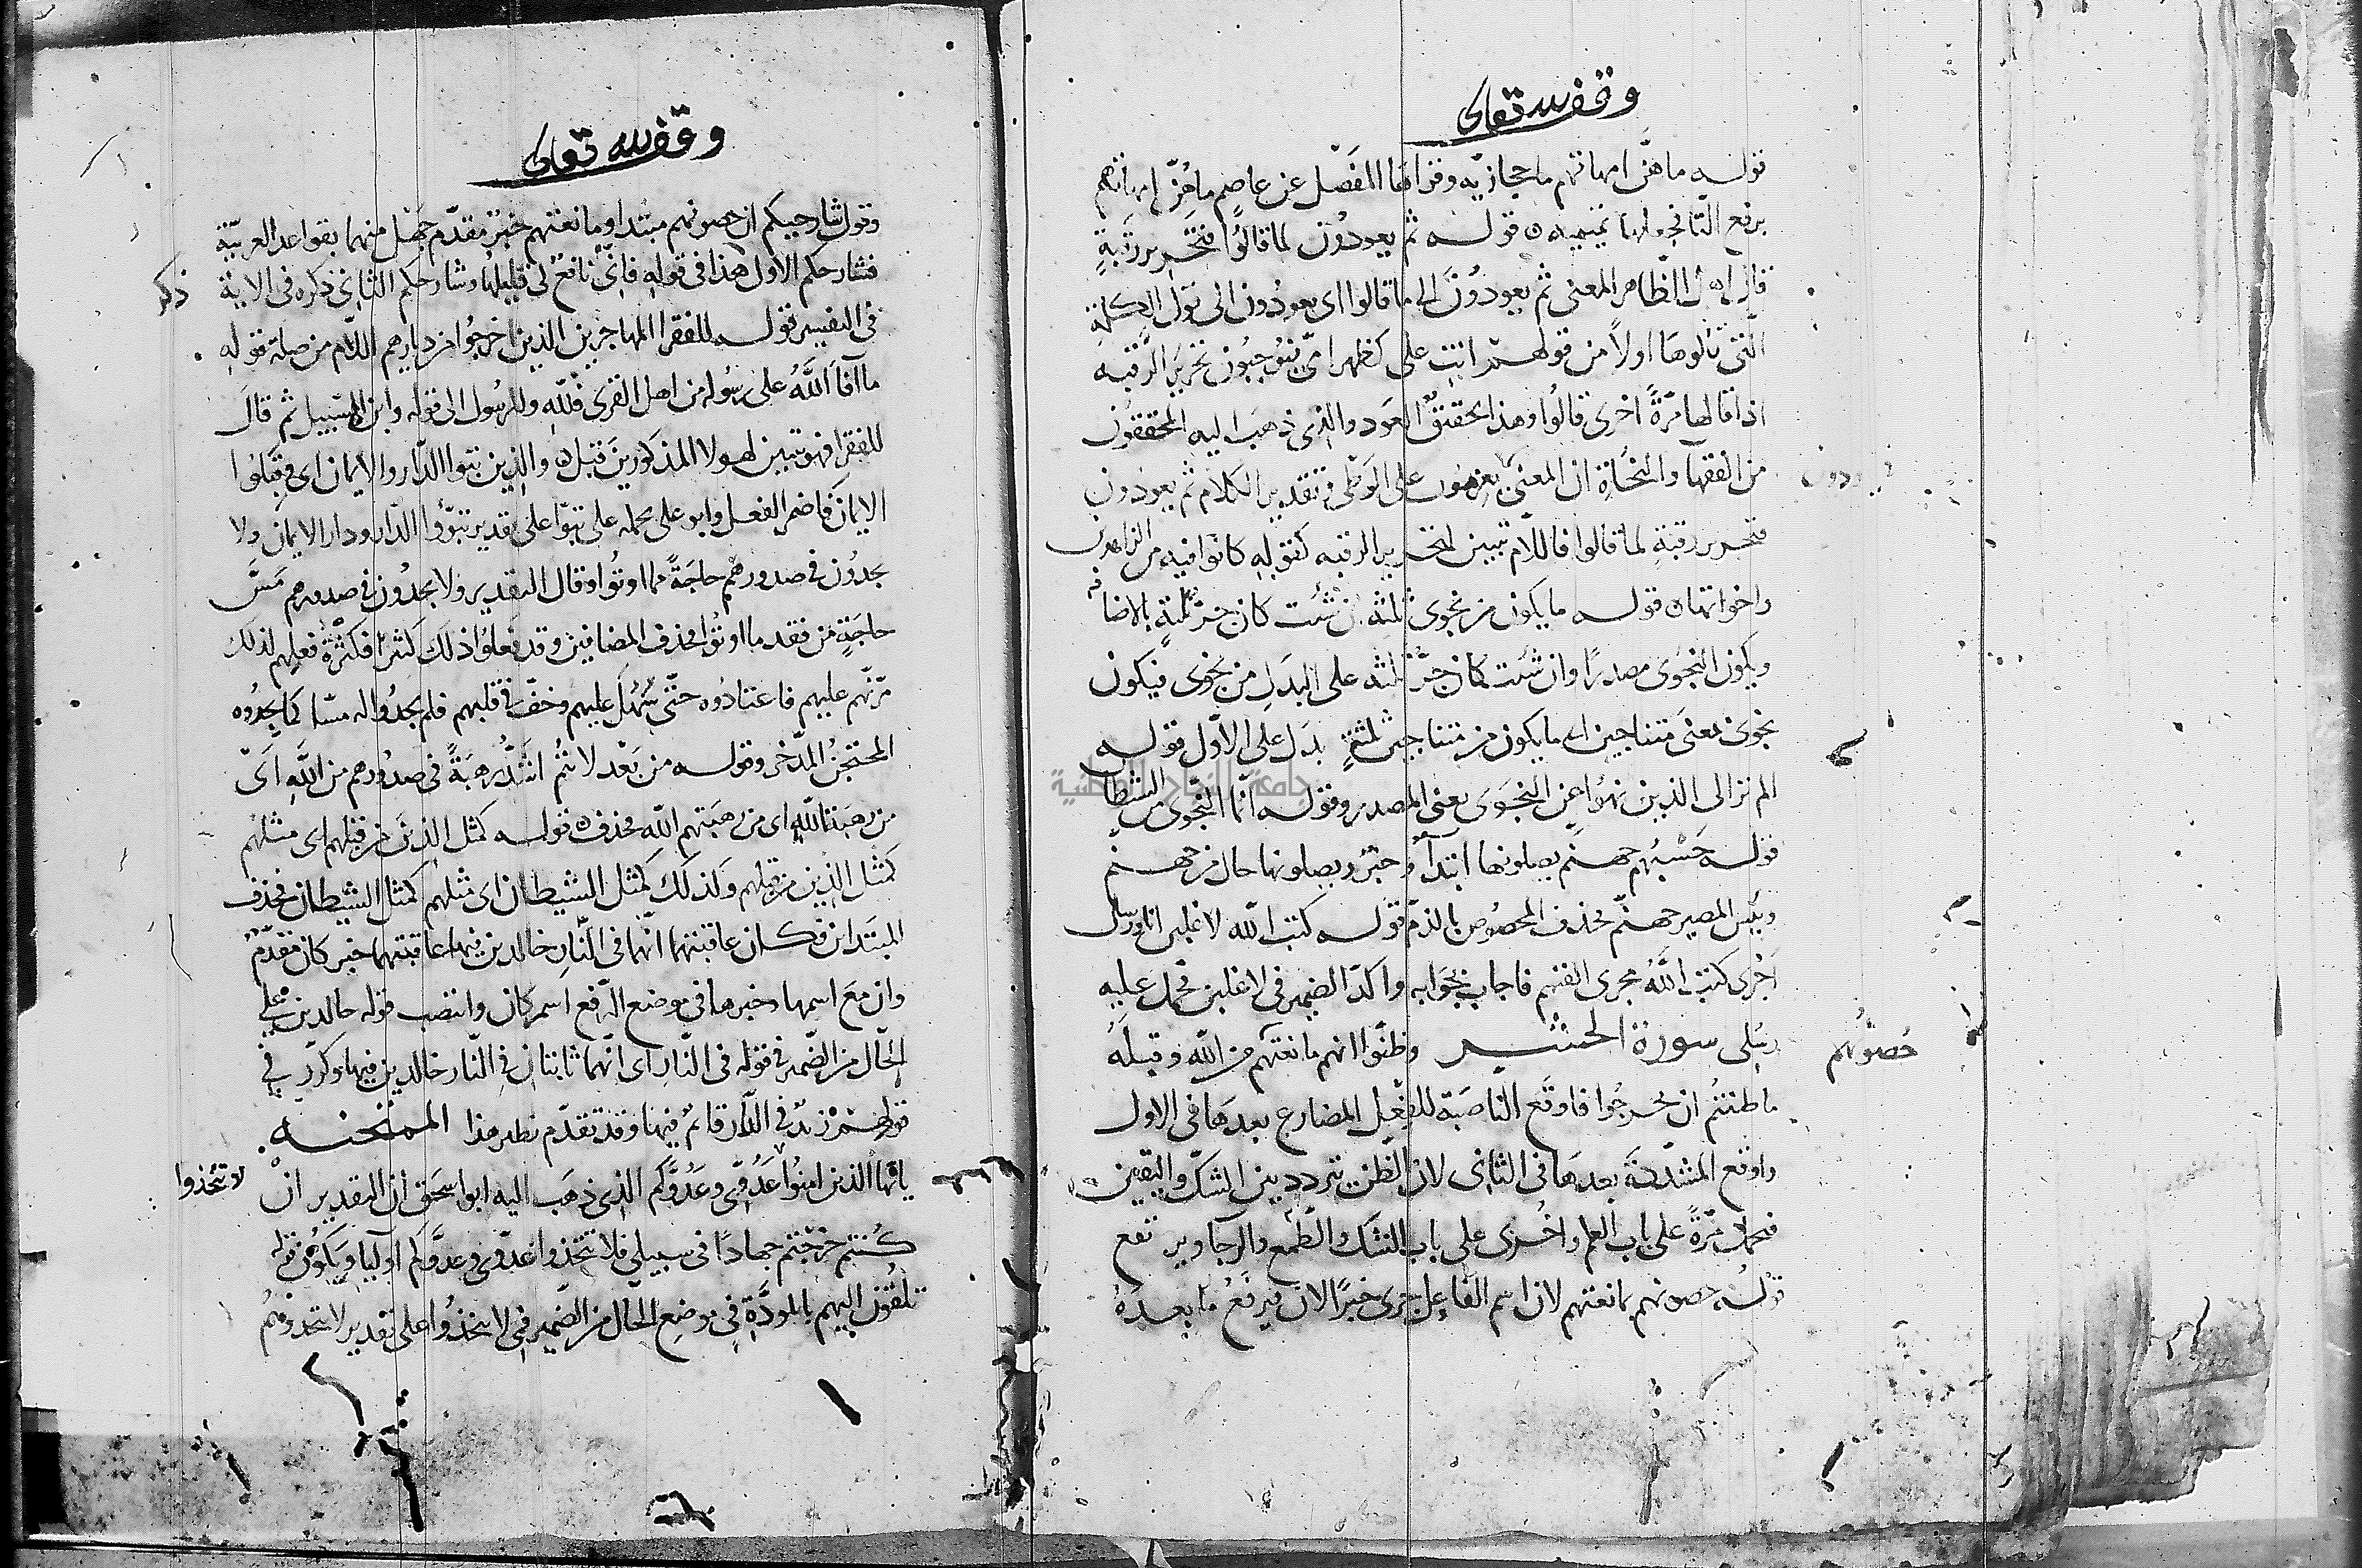 وقف لله تعالى
قوله ما هنّ امهاتهم ما حجازيه وقراها المفَضّل عن عاصم ما هُنّ امهاتهم
برفع التا فجعلها تميميه ٥ قوله ثم يعودُون لما قالُوا فتحرير رقبةٍ
قال اهل الظاهر المعنى ثم يعودُونَ الى ما قالوا اى يعودُون الى قول الكلمة
التى قالوها اولاً من قولهم انتِ على كظهر امى فيوجبُون تحرير الرقبه
اذا قالها مرّةً اخرى قالُوا وهذا تحقيق العَود والذى ذهبَ اليه المحققُون
من الفقهآ والنحَاة ان المعنى يعزمُون على الوَطْى فى تقدير الكلام ثم يعودون
فتحرير رقبةٍ لما قالوا فاللّام تبيين لتحرير الرقبه كقوله كانوا فيه من الزاهدين
واخواتها ٥ قوله ما يكون من نجوى ثلثه ان شئت كان جرّ ثلثةٍ بالاضافه
ويكون النجوَى مصدرًا وان شئت كان جرُّ ثلثه على البدَلِ من نجوى فيكون
نجوى بمعنى متناجين اى ما يكون من متناجين ثلثةٍ بدَل على الاوّل قوله
الم تر الى الذين نهُوا عن النجوَى بمعنى المصدر وقوله انّما النّجوى من الشيطا
قوله حَسْبُهم جهنّم يصلونها ابتدآءٌ وخبرٌ ويصلونها حال من جهنم
وبيس المصير جهنّم فحذف المخصُوص بالذم قوله كتب الله لاغلبن انا ورسلى
اجْرى كتب اللَّهُ مجرى القسم فاجاب بجَوابه واكدّ الضمير فى لاغلبن فحمل عليه
رسُلى سورة الحشر وظنّوا انهم مانعتهم من الله وقبلهُ
حصُونُهم
ما ظننتُم ان يخرجُوا فاوقَع الناصَبة للفِعْل المضارع بعدهَا فى الاول
واوقع المشدّدةَ بعدهَا فى الثانى لان الظن يتردد بين الشكّ واليقين
فحمل مرّةً على باب العلم واخرى على باب الشك والطّمع والرجا ويرتفع
قوله حصونهم بمانعتهم لان اسم الفاعل جرى خبرًا لان فيرفعُ ما بعدهُ
وقف لله تعالى
وقول شارحيكم ان حصونهم مبتدا ومانعتهم خبرٌ مقدّم جَهْل منهما بقواعد العربيّة
فشارحكم الاول هذا فى قوله فانّى نافعٌ لى قليلها وشارحكم الثانى ذكره فى الاية
ذكر
فى التفسير قوله للفقرا المهاجرين الذين اخرجُوا من ديارهم اللّام من صلة قوله
ما آفآ اللَّهُ على رسُوله من اهل القرى فلله وللرسُول الى قوله وابن السّبيل ثم قالَ
للفقرا فهو تبيين لهولا المذكورينَ قبل ٥ والذين تبوا الدّار والايمان اى وقبلُوا
الايمانَ فاضمر الفعل وابو على يحمله على تبوّا على تقدير تبوّؤا الدّار ودار الايمان ولا
يجدُون فى صدورهم حاجَةً مما اوتُوا وقال التقدير ولا يجدُون فى صدورهم مَسَّ
حاجَةٍ من فقد ما اوتُوا فحذف المضافين وقد فعلُوا ذلك كثيرًا فكثرة فعلهم لذلك
مرّنهم عليهم فاعتادُوه حتّى سَهُل عليهم وخفّ فى قلبهم فلم يجدُوا له مسّا كما يجدُوه
المحتجنُ المدّخر وقوله من بَعْد لانتُم اشَدُّ رهبَةً فى صدُورهم من اللَّهِ اَىْ
من رهبَة اللَّهِ اى من رَهبَتهم الله فحذف ٥ قوله كمثل الذينَ من قبلهم اى مثلهم
كمثَل الذين من قبلهم وَكذلكَ كمثَل الشيطان اى مثلهم كمثل الشيطان فحذف
المبتَدا فكان عاقبتهما انّهما فى النّارِ خالدين فيها عاقبتهما خبر كان مقدّم
وان معَ اسمها وخبرها فى موضع الرّفع اسم كان وانتصب قوله خالدين على
الحَال من الضّمير فى قوله فى النّار اى انّهما ثابتان فى النّار خالدين فيها وكرّر فى
قولهم زيدٌ فى الدّار قائمٌ فيها وقد تقدّم نظير هذا الممتحنه
ياايّها الذين امنُوا عدُوّى وعَدُوَّكم الذى ذهَب اليه ابو اسحق ان التقدير ان
لا تتخذوا
كُنتم خرجْتم جهادًا فى سبيلى فلا تتخذوا عدّوى وعدوّكم اوليا ويَكوُن قوله
تلقون اليهم بالمودَّة فى موضع الحَال من الضّمير فى لا تتخذُوا على تقدير لا تتخذوهُم